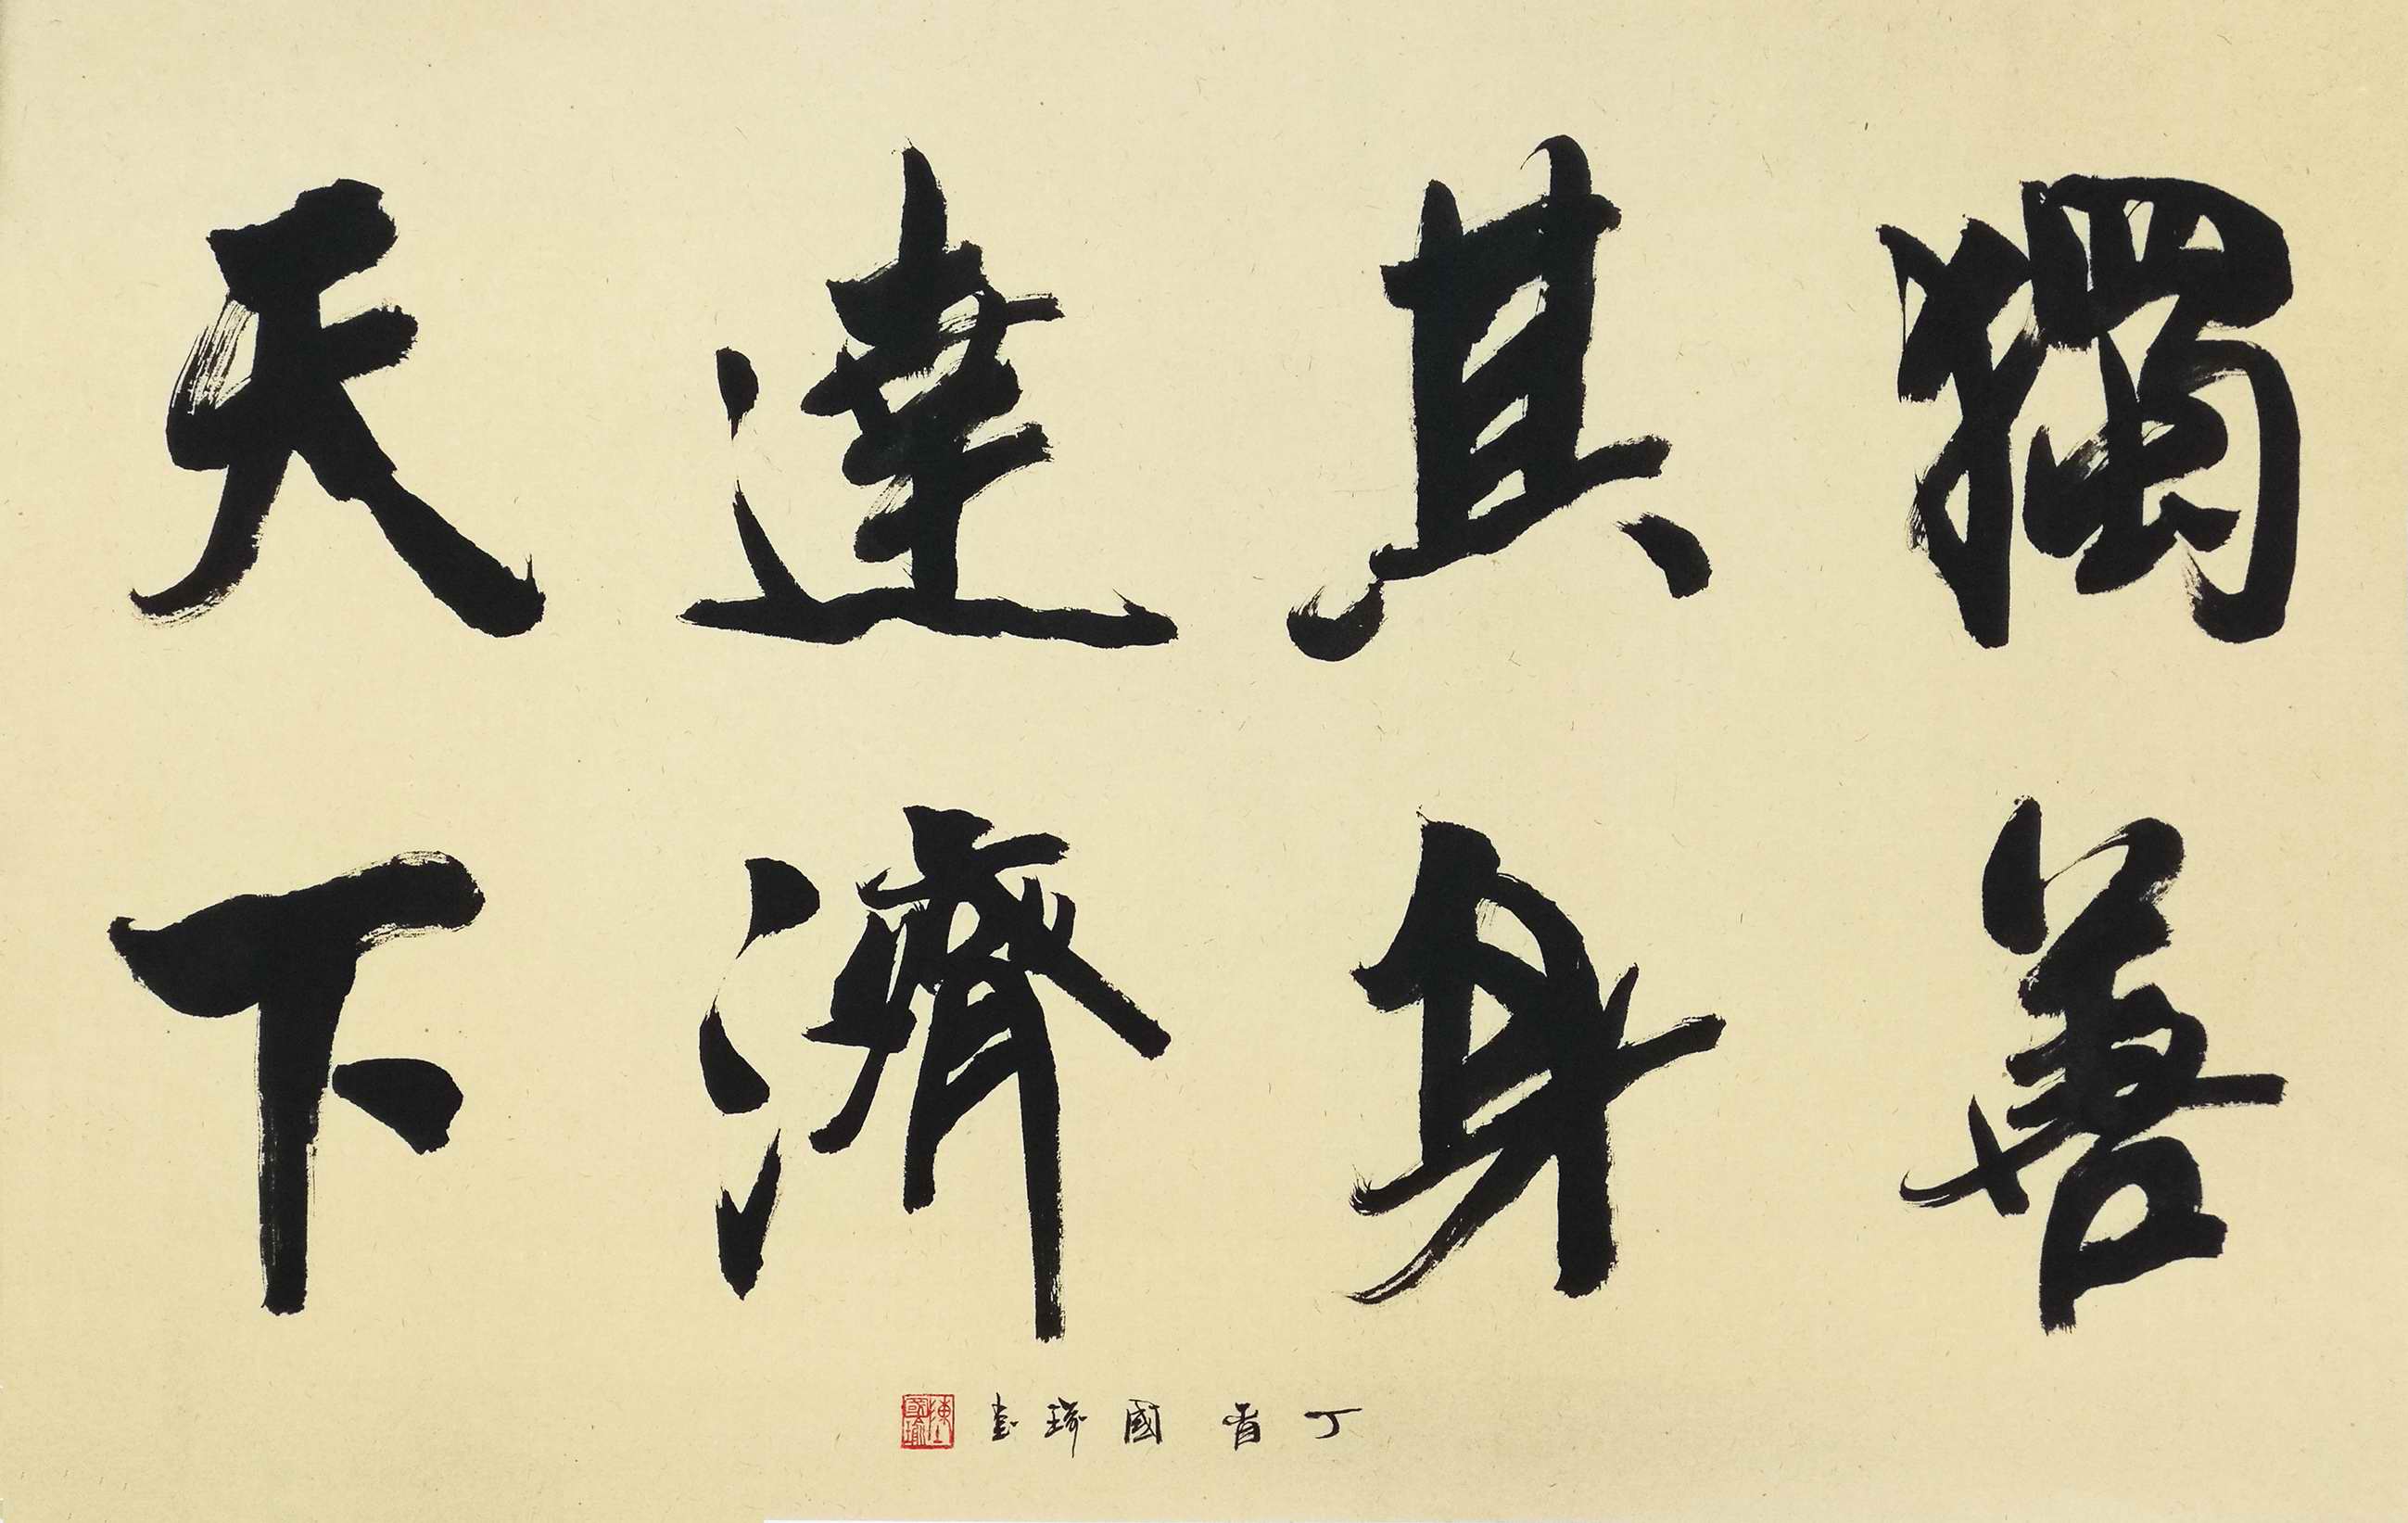 獨善
其身
達濟
天下
丁酉國瑜書